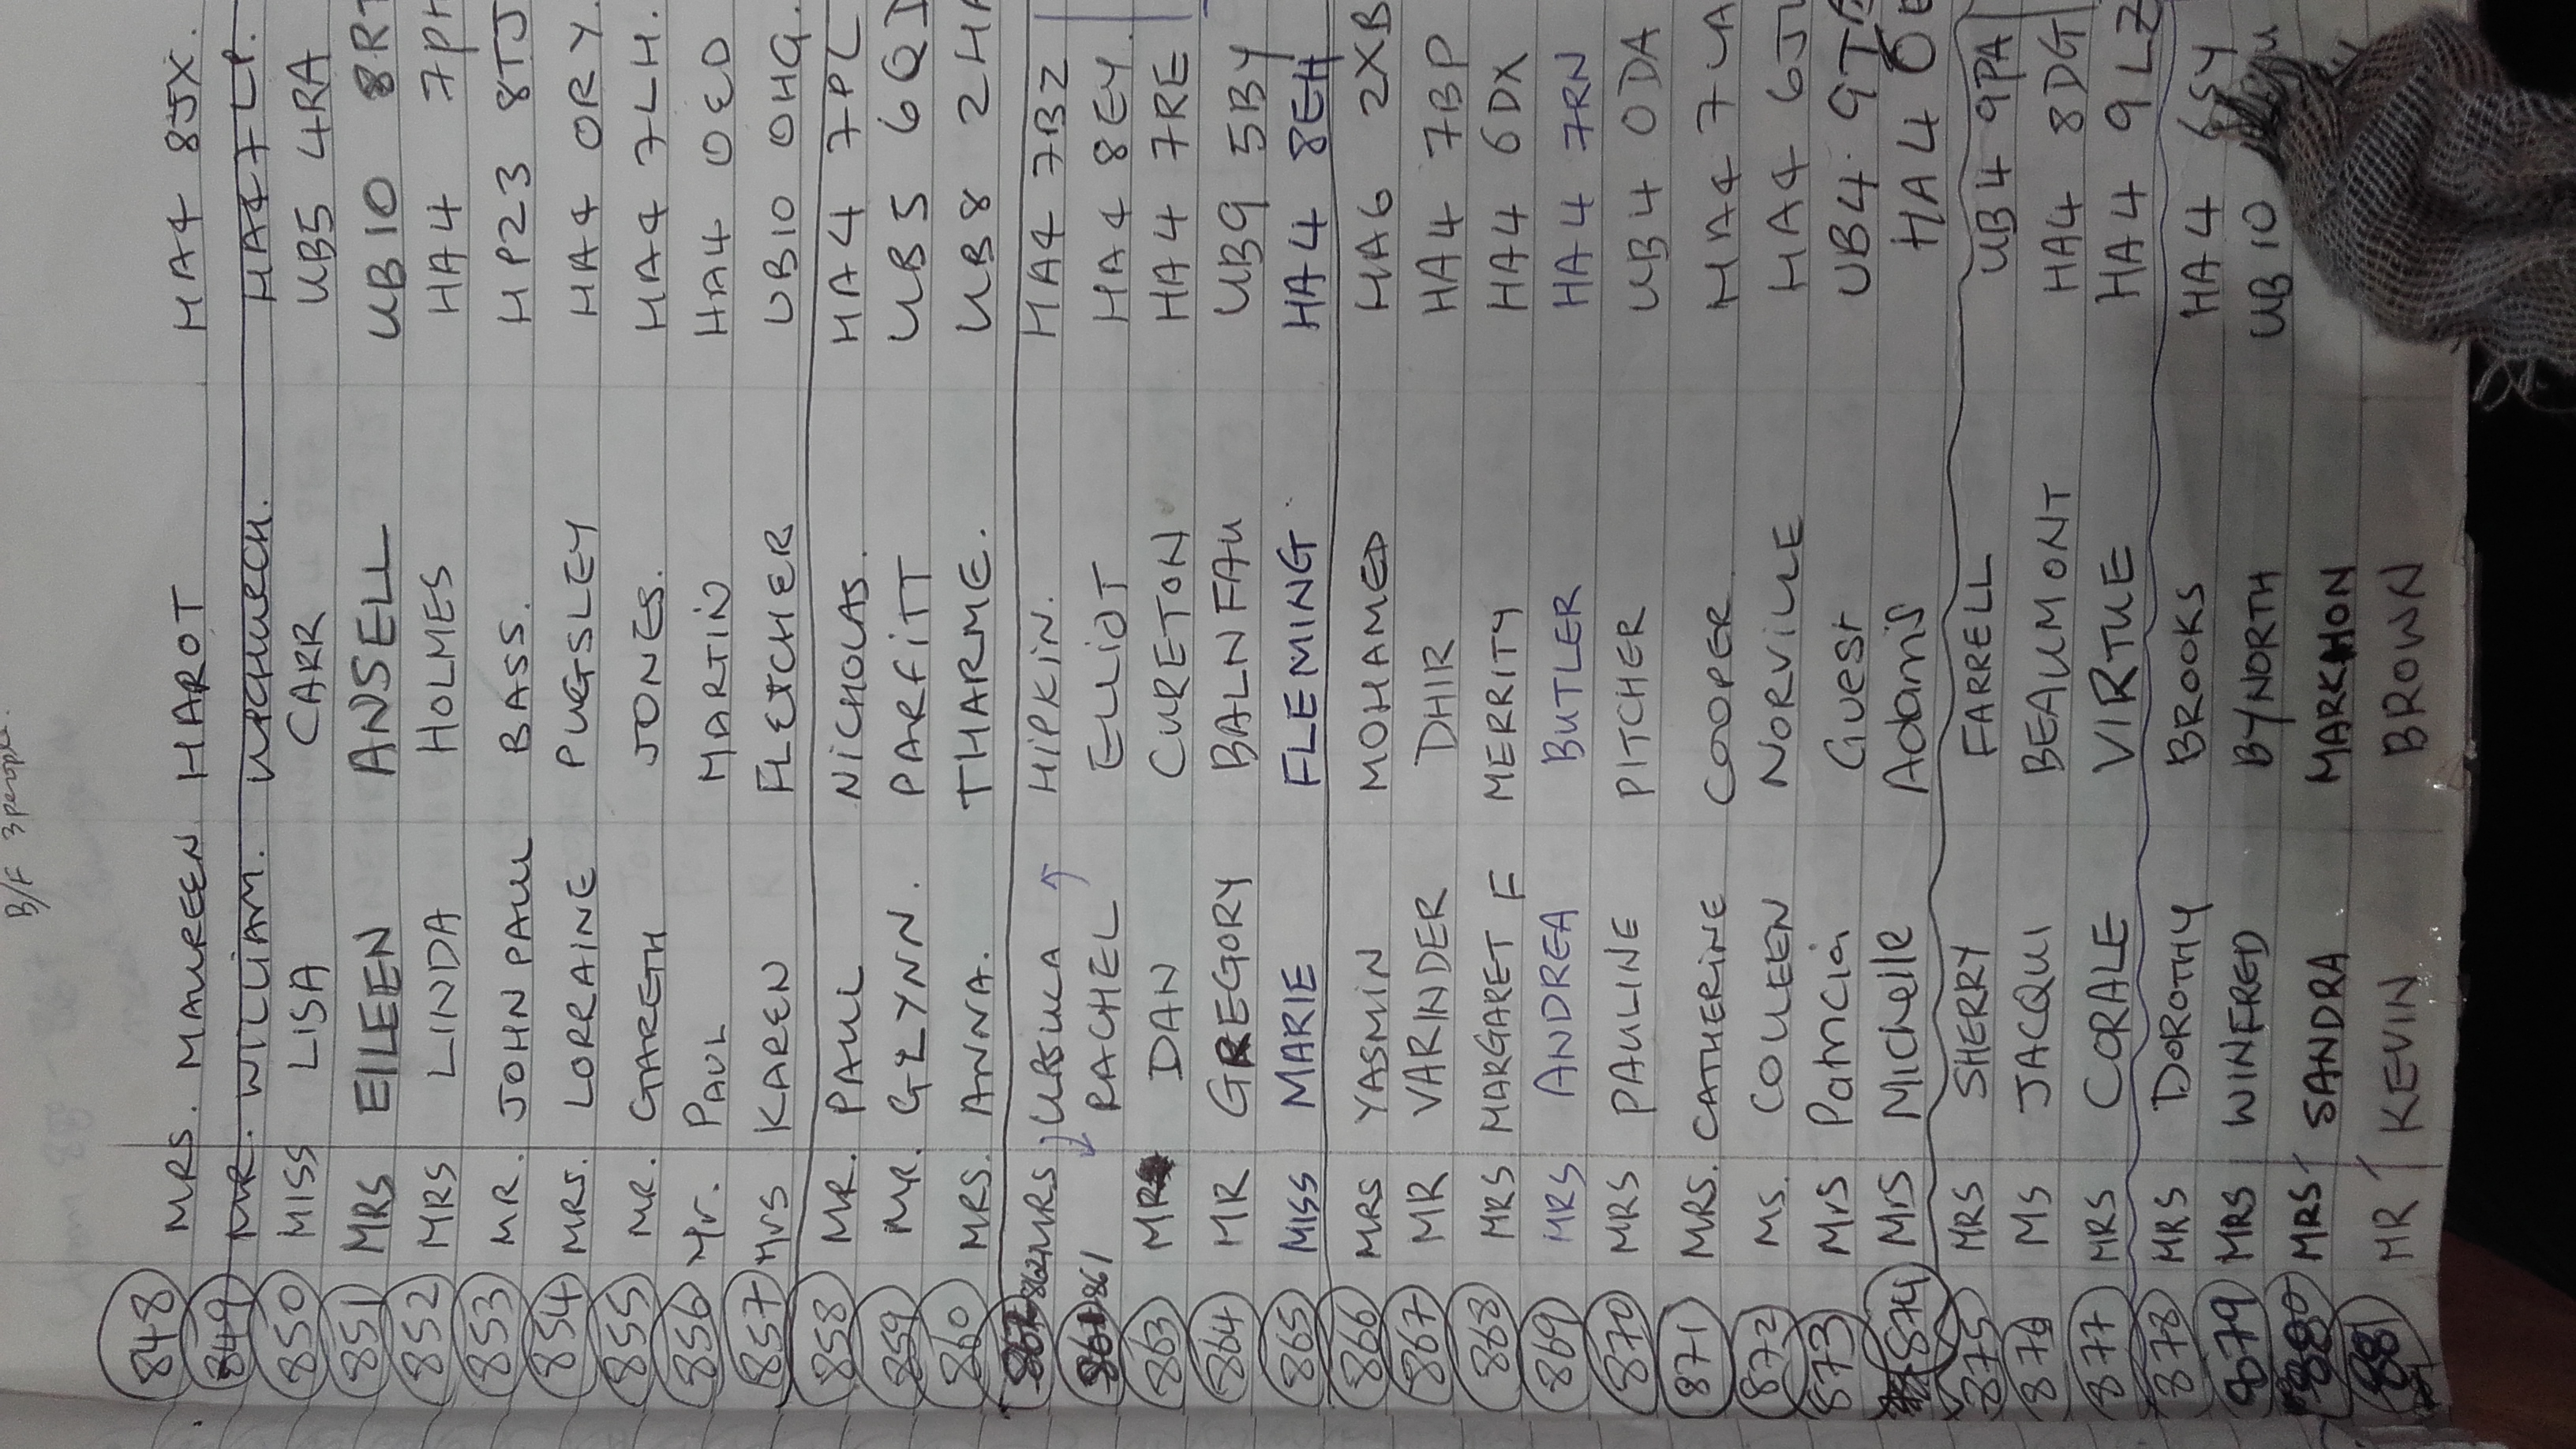 B/F 3 people.
848 MRS. MAUREEN HAROT HA4 8JX.
849 MR. WILLIAM. UPCHURCH. HA4 7LP.
850 MISS LISA CARR UB5 4RA
851 MRS EILEEN ANSELL UB10 8R
852 MRS LINDA HOLMES HA4 7P
853 MR. JOHN PAUL BASS. HP23 8TJ
854 MRS. LORRAINE PUGSLEY HA4 0RY.
855 MR. GARETH JONES. HA4 7LH.
856 Mr. PAUL MARTIN HA4 0ED
857 Mrs KAREN FLETCHER UB10 0HG.
858 MR. PAUL NICHOLAS. HA4 7PL
859 MR. GLYNN. PARFITT UB5 6Q
860 MRS. ANNA. THARME. UB8 2H
862 MRS URSULA HIPKIN. HA4 7BZ
861 RACHEL ELLIOT HA4 8EY.
863 MR DAN CURETON HA4 7RE
864 MR GREGORY BALNFAU UB9 5BY
865 MISS MARIE FLEMING HA4 8EH
866 MRS YASMIN MOHAMED HA6 2XB
867 MR VARINDER DHIR HA4 7BP
868 MRS MARGARET F MERRITY HA4 6DX
869 MRS ANDREA BUTLER HA4 7RN
870 MRS PAULINE PITCHER UB4 0DA
871 MRS. CATHERINE COOPER. HA4 7LA
872 MS. COLLEEN NORVILLE HA4 6J
873 Mrs Patricia Guest UB4 9T
874 Mrs Michelle Adams HA4
875 MRS SHERRY FARRELL UB4 9PA
876 MS JACQUI BEAUMONT HA4 8DG
877 MRS CORALE VIRTUE HA4 9LZ
878 MRS DOROTHY BROOKS HA4 6SY
879 MRS WINFRED BYNORTH UB10
880 MRS SANDRA MARKHON
881 MR KEVIN BROWN